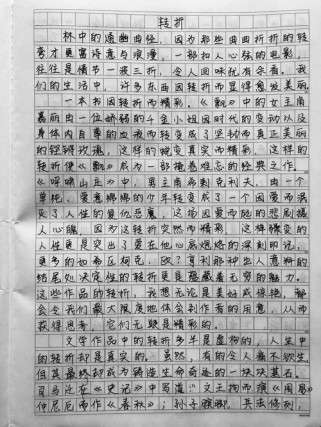 转折
林中的通幽曲径，因为那些曲曲折折的转
弯才更富诗意与浪漫，一部扣人心弦的电影，
往往是情节一波三折，令人回味犹有余香，我
们的生活中，许多东西因转折而显得愈发美丽。
一本书因转折而精彩。《飘》中的女主角
嘉丽由一位娇弱的千金小姐因时代的变动以及
身体内自尊的血液而转变成了坚韧而真正美丽
的铿锵玫瑰，这样的蜕变真实而精彩，这样的
转折使《飘》成为一部掩卷难忘的经典之作。
《呼啸山庄》中，男主角希刺克利夫，由一个
单纯、爱意绵绵的少年转变成了一个因爱而泯
灭了人性的复仇恶魔，这场因爱而施的悲剧撼
人心魄，因为这转折突然而精彩，这样骤变的
人性更是突出了爱在他心底烙烙的深刻印记。
更多的如希区柯克、欧?亨利那种出人意料的
结尾处决定性的转折更是蕴藏着无穷的魅力。
这些作品的转折，我想无论是美好或惊艳，都
会令我们最大限度地体会到作者的用意，从而
获得思考，它们无疑是精彩的。
文学作品中的转折多半是虚构的，人生中
的转折却是真实的。虽然，有的令人痛不欲生
但其最终却成为铸造生命奇迹的一块块基石。
司马迁在《史记》中写道：“文王拘而演《周易》
仲尼厄而作《春秋》；孙子膑脚，兵法修列；